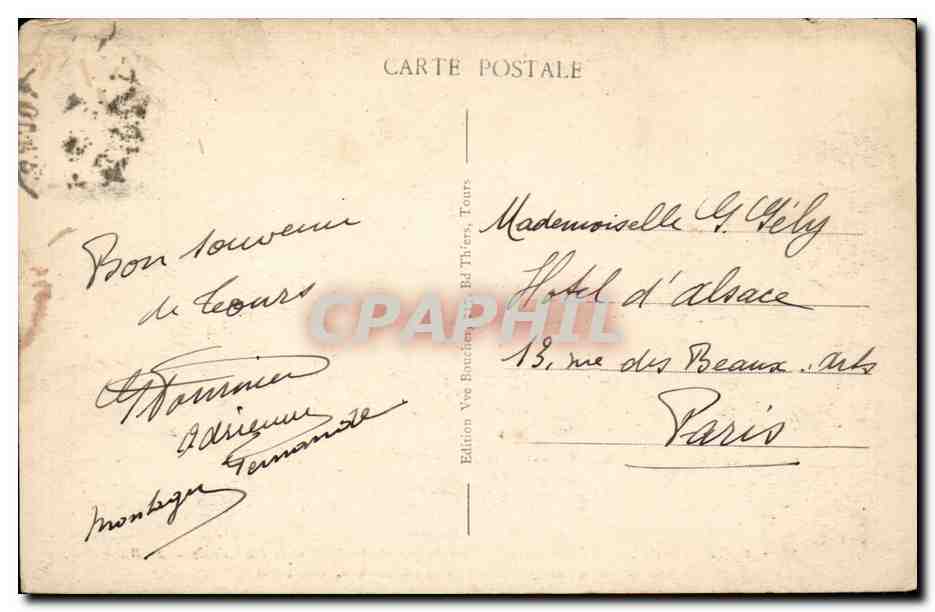 CARTE POSTALE
Bon souvenir
de Tours
Fournier
Adrienne
Fernande
Montagu
Edition Vve Boucher, Bd Thiers, Tours
Mademoiselle G. Gély
Hotel d'alsace
13, rue des Beaux. arts
Paris
CPAPHIL